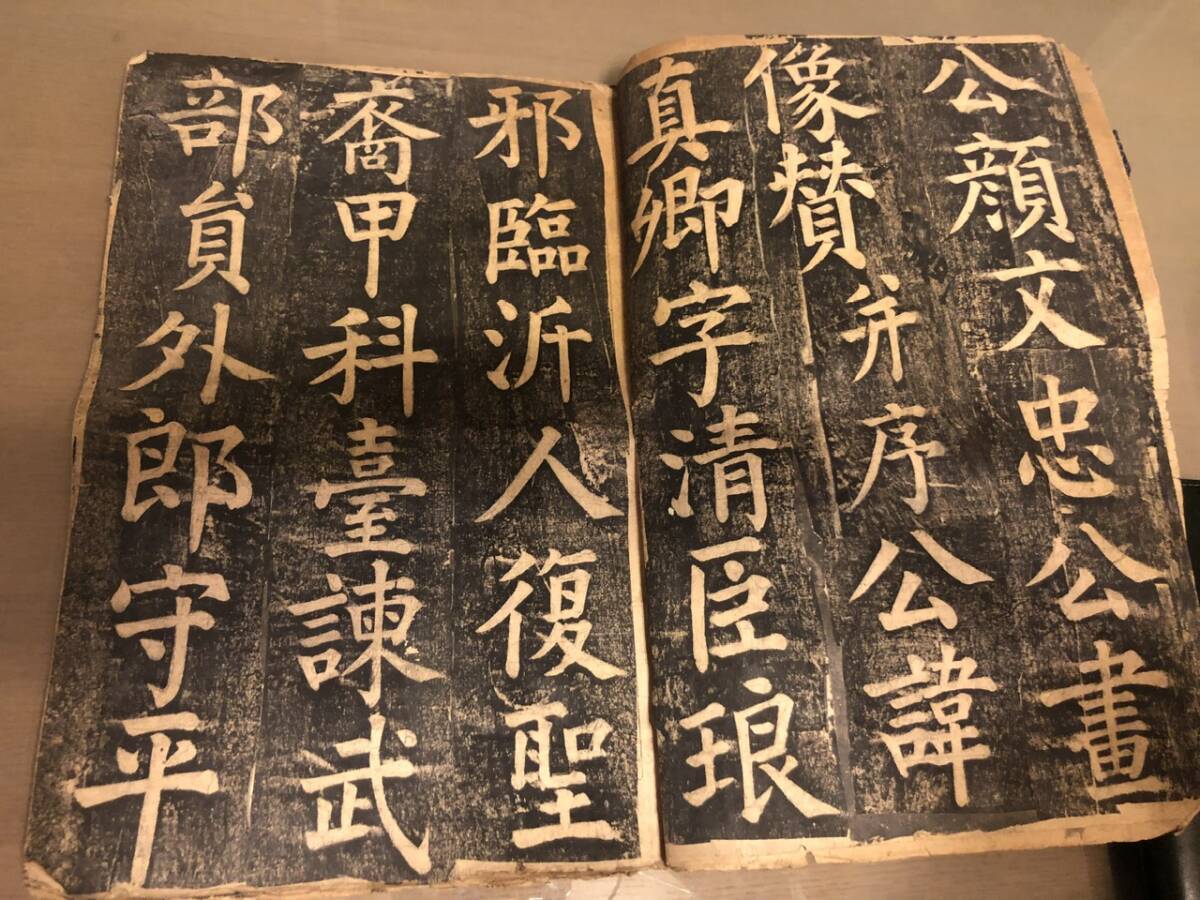 公顔文忠公畫
像賛并序公諱
真卿字清臣琅
邪臨沂人復聖
裔甲科臺諫武
部貟外郎守平